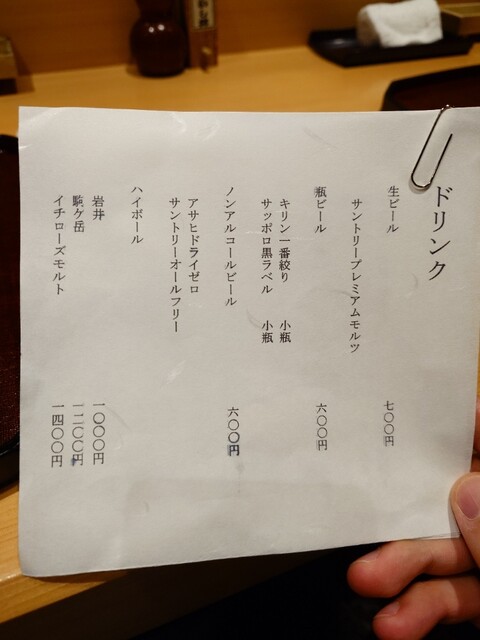 ドリンク
生ビール 七〇〇円
サントリープレミアムモルツ
瓶ビール 六〇〇円
キリン一番絞り 小瓶
サッポロ黒ラベル 小瓶
ノンアルコールビール 六〇〇円
アサヒドライゼロ
サントリーオールフリー
ハイボール
岩井 一〇〇〇円
駒ケ岳 一二〇〇円
イチローズモルト 一四〇〇円